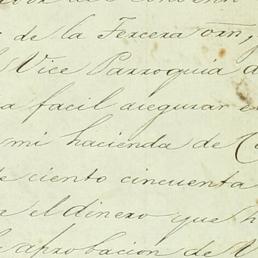 de la Tercera orn,
Vice Parroquia
a facil asegurar
mi hacienda de
ciento cincuenta
el dinero que
aprobacion de